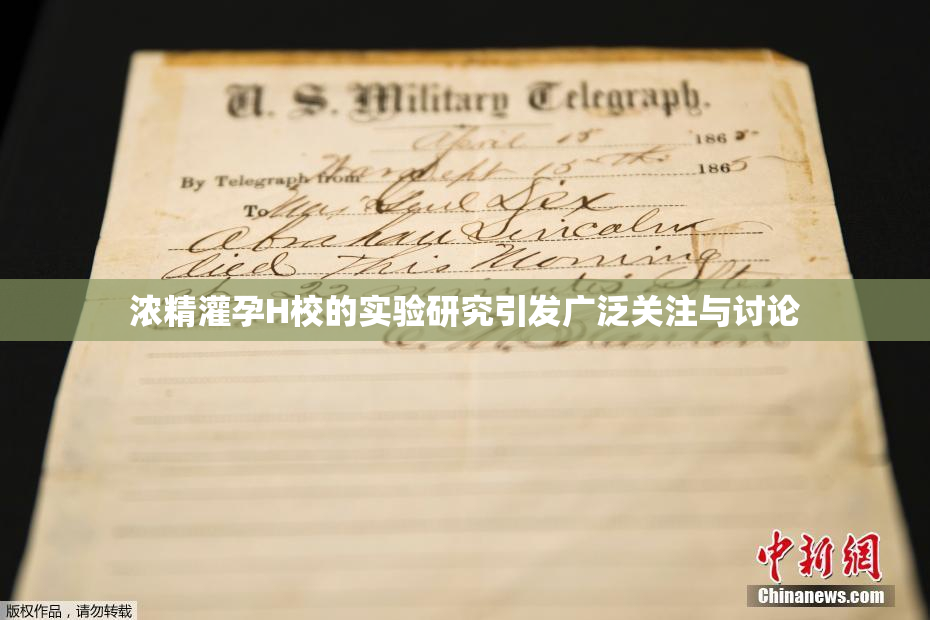 U. S. Military Telegraph.
April 15 1865
By Telegraph from War Dept 15th 1865
To Maj Genl Dix
Abraham Lincoln
died This Morning
at 22 minutes after
浓精灌孕H校的实验研究引发广泛关注与讨论
E. M. Stanton
中新网
Chinanews.com
版权作品，请勿转载